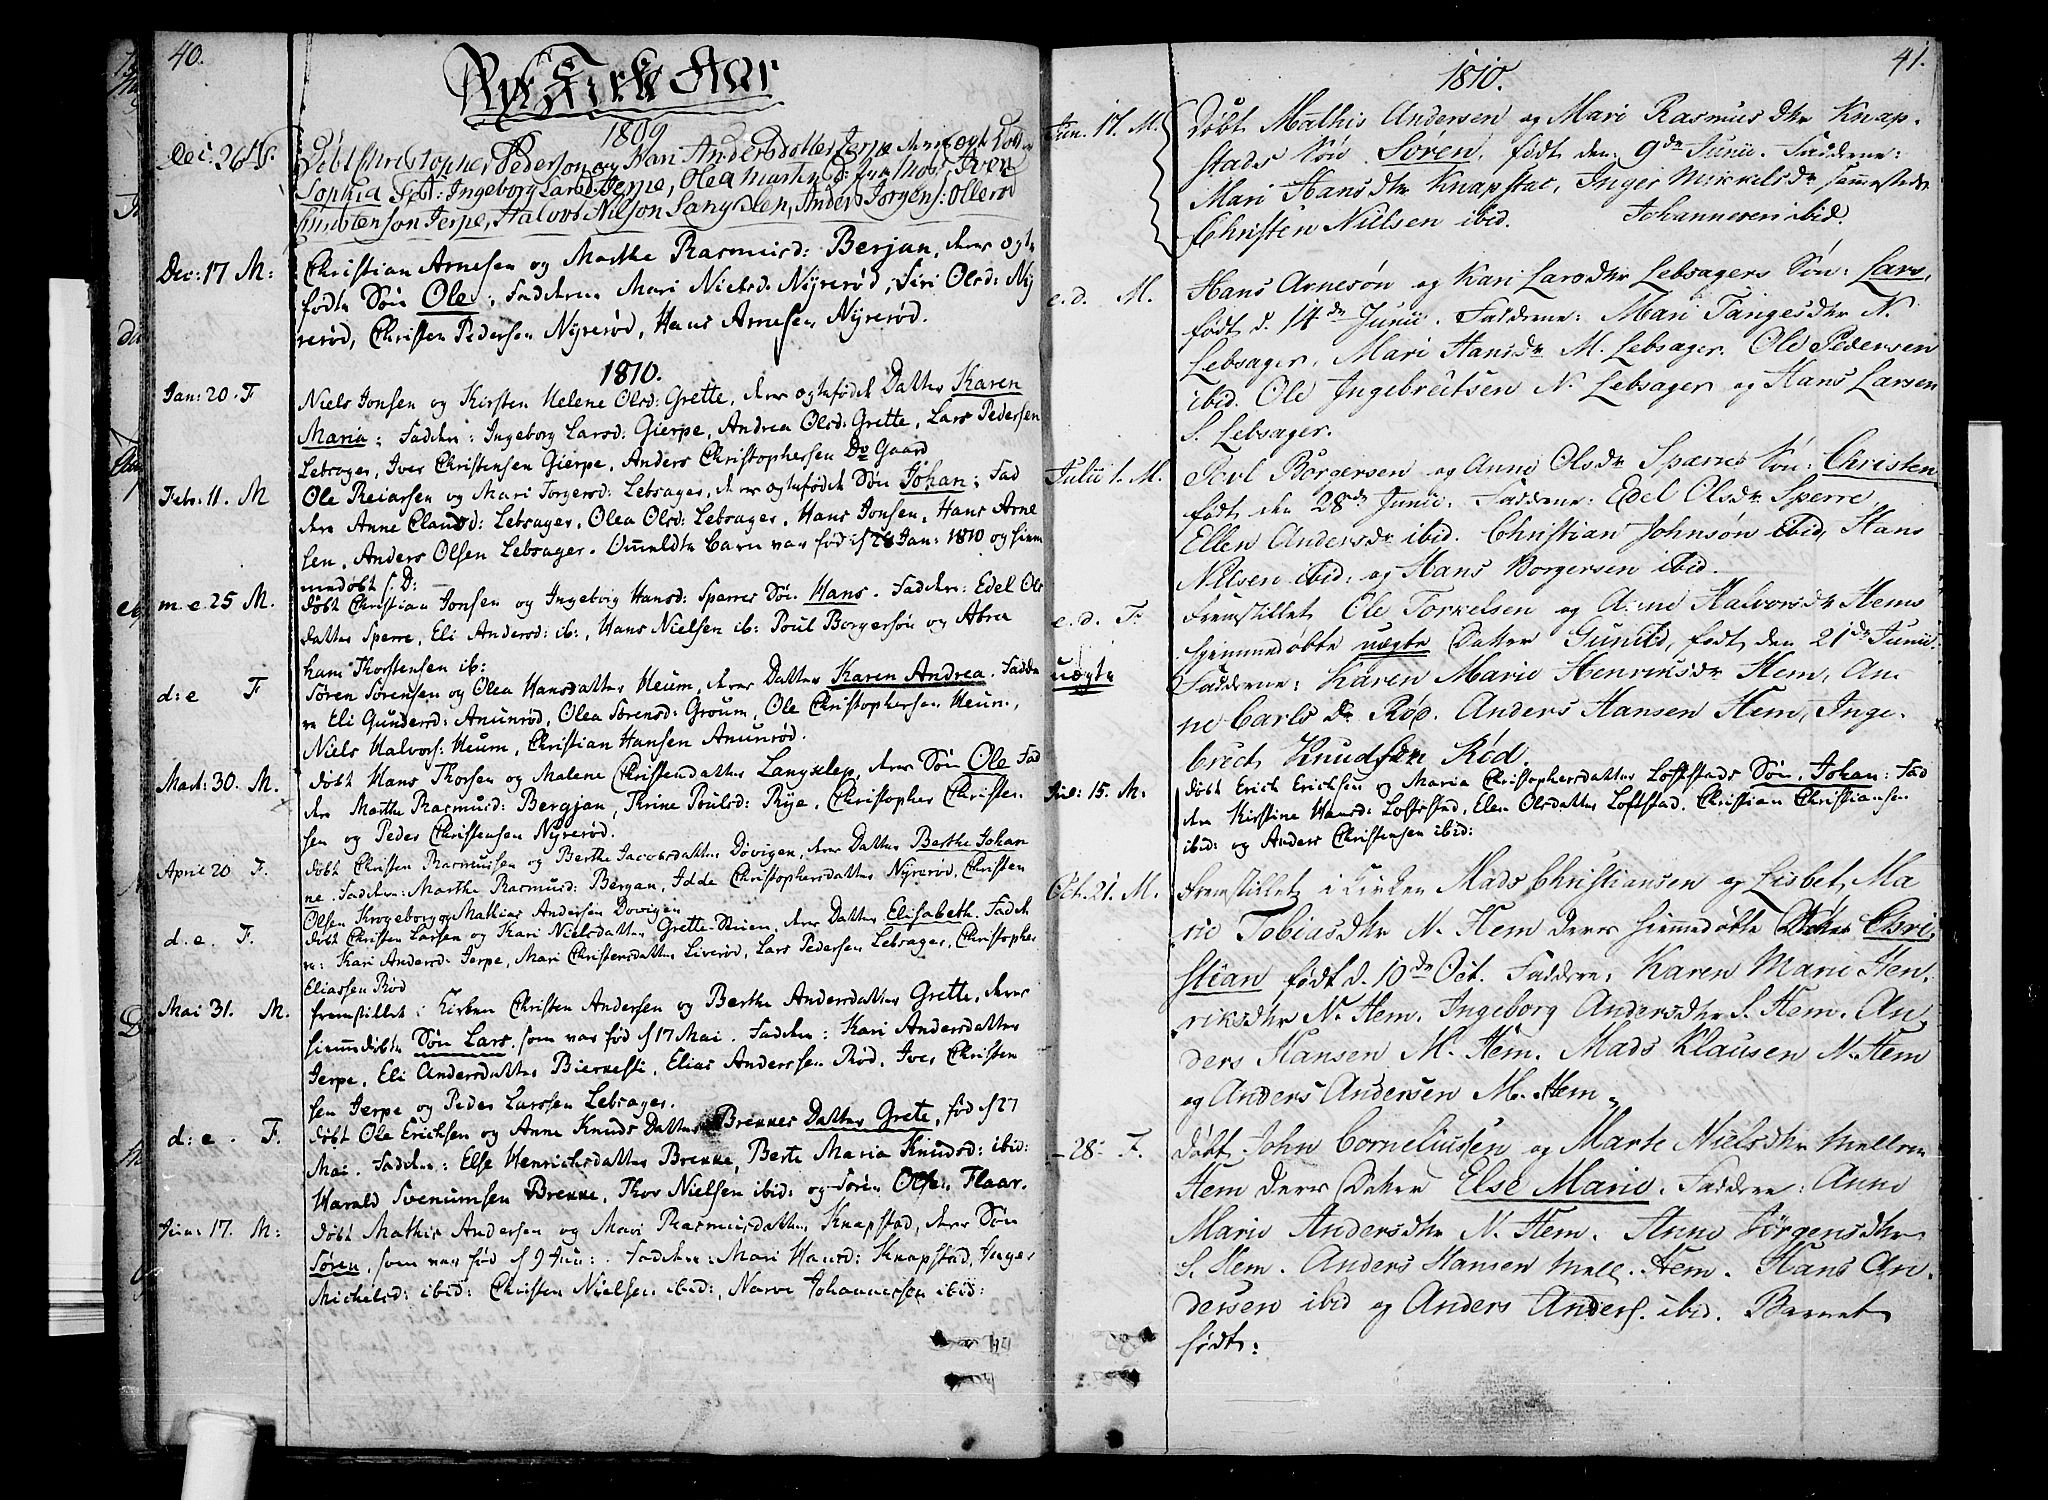 40.
Nye Kirke Aar
1809
Dec: 26 F. Døbt Christopher Pederson og Kari Andersdotter Jerpe deres ægt Dotter
Sophia Fad: Ingeborg Larsd: Jerpe, Olea Martin D: Thor Iver
Christenson Jerpe, Halvor Nilson Langslen, Anders Jørgens: Ollerød
Dec: 17 M: Christian Arnesen og Marthe Rasmusd: Berjan, deres ægte
fødte Søn Ole; Fadderne Mari Nielsd: Nyrerød, Siri Olsd: Ny
rerød, Christen Pedersen Nyrerød, Hans Arnesen Nyrerød.
1810.
Jan: 20. F Niels Jonsen og Kirsten Helene Olsd: Grette, deres ægtefødde Datter Karen
Maria; Fadder: Ingeborg Larsd: Gierpe, Andrea Olsd: Grette, Lars Pedersen
Lebsager, Iver Christensen Gierpe, Anders Christophersen Do Gaard
Febr: 11. M Ole Reiarsen og Mari Torgersd: Lebsager, deres ægtefødde Søn Johan; Fad
dere Anne Claudsd: Lebsager, Olea Olsd: Lebsager, Hans Jonsen, Hans Arne
sen, Anders Olsen Lebsager. Ommeldte Barn var fød d 28 Jan: 1810 og hiem
medøbt s: D:
m. e. 25 M. døbt Christian Jonsen og Ingebor Hansd: Sparres Søn Hans. Fadder: Edel Ols
datter Sperre, Eli Andersd: ib:, Hans Nielsen ib: Poul Borgersøn og Abra
ham Thorstensen ib:
d: e F Søren Sørensen og Olea Hansdatter Heum, deres Datter Karen Andrea. Fadde
re Eli Gundersd: Amunrød, Olea Sørensd: Groum, Ole Christophersen Heum,
Niels Halvors: Heum, Christian Hansen Amunrød.
Mart: 30. M. døbt Hans Thorsen og Malene Christendatter Langslep, deres Søn Ole Fad
dere Marthe Rasmusd: Bergjan, Thrine Poulsd: Rye, Christopher Christen
sen og Peder Christensen Nyrerød.
April 20 F. døbt Christen Rasmussen og Berthe Jacobsdatter Dovigen, deres Datter Berthe Johan
ne. Fadder: Marthe Rasmusd: Bergan, Idde Christophersdatter Nyrerød, Christen
Olsen Krogeborg og Mathias Andersen Dovigen
d. e. F. døbt Christen Larsen og Kari Nielsdatter Grette-Stuen, deres Datter Elisabeth. Fadde
re: Kari Andersd: Jerpe, Mari Christensdatter Liverød, Lars Pedersen Lebsager, Christopher
Eliassen Rød
Mai 31. M. fremstillet i Kirken Christen Andersen og Berthe Andersdatter Grette, deres
hiemmdøbte Søn Lars, som var fød d 17 Mai. Fadder: Kari Andersdatter
Jerpe, Eli Andersdatter Bierkesti, Elias Anderssen Rød, Iver Christen
sen Jerpe og Peder Larssen Lebsager.
d: e. F. døbt Ole Ericksen og Anne Knuds Datter Brekkes Datter Grete, fød d 27
Mai. Fadder: Else Henrichsdatter Brekke, Berte Maria Knudsd: ibid:
Harald Svenumsen Brekke, Thor Nielsen ibid: og Søren Olsen Flaar.
Jun: 17. M: døbt Mathis Andersen og Mari Rasmusdatter Knapstad, deres Søn
Søren, som var fød d 9 Jun: Fadder: Mari Hansd: Knapstad, Inger
Michelsd: ibid: Christen Nielsen ibid:, Narve Johannessen ibid:
41.
1810.
Jun. 17. M. Døbt Mathis Andersen og Mari Rasmus Dtr Knap-
stads Søn Søren, født den 9de Junii. Fadderne:
Mari Hansdtr Knapstad, Inger Mikkelsdr sammesteds
Christen Nielsen ibid. Johannesen ibid.
e. d. M. Hans Arnesøn og Kari Larsdtr Lebsagers Søn: Lars,
født d. 14de Junii. Fadderne: Mari Tangesdtr N.
Lebsager, Mari Hansdr M. Lebsager. Ole Pedersen
ibid. Ole Ingebretsen N. Lebsager og Hans Larsen
S. Lebsager.
Julii 1. M. Povl Borgersen og Anne Olsdr Sparres Søn: Christen
født den 28de Junii. Fadderne: Edel Olsdr Sperre,
Ellen Andersdr ibid. Christian Johnsøn ibid, Hans
Nilsen ibid: og Hans Borgersen ibid.
e. d. F. Fremstillet Ole Torkelsen og Anne Halvorsdr Hems
uægte hjemmedøbte uægte Datter Gunild, født den 21de Junii.
Fadderne: Karen Marie Henriksdr Hem, An-
ne Carls Dr Rød. Anders Hansen Hem, Inge-
brich Knudsen Rød.
Jul: 15. M. døbt Erick Ericksen og Maria Christophersdatter Loftstads Søn, Johan: Fad
dere Kirstine Hansd: Loftstad, Elen Olsdatter Loftstad, Christian Christiansen
ibid: og Anders Christensen ibid:
Oct. 21. M. Fremstillet i Kirken Mads Christiansen og Lisbet Ma
rie Tobiasdtr N. Hem deres hjemmedøbte Chri
stian født d. 10de Oct. Faddere: Karen Marie Hen-
riksdtr N. Hem, Ingeborg Andersdtr S. Hem. An-
ders Hansen M. Hem. Mads Klausen N. Hem
og Anders Andersen M. Hem.
- 28: F. Døbt John Corneliussen og Marte Nielsdtr Mellem
Hem deres Datter Else Marie. Faddere: Anne
Marie Andersdtr N. Hem. Anne Jørgensdtr
S. Hem. Anders Hansen Mell. Hem. Hans An-
dersen ibid og Anders Anders. ibid. Barnet
født: